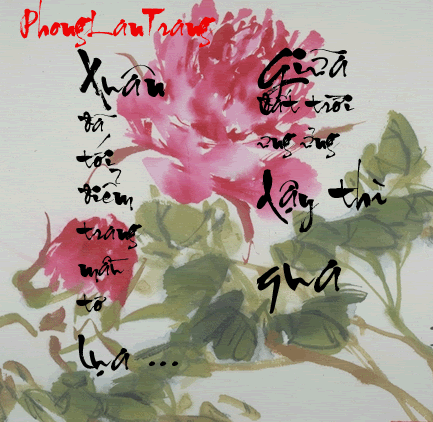 PhongLanTrang
Xuân
đã
tới
điểm
trang
mần
tơ
lụa ...
Giữa
đất trời
ưng ửng
dậy thì
qua